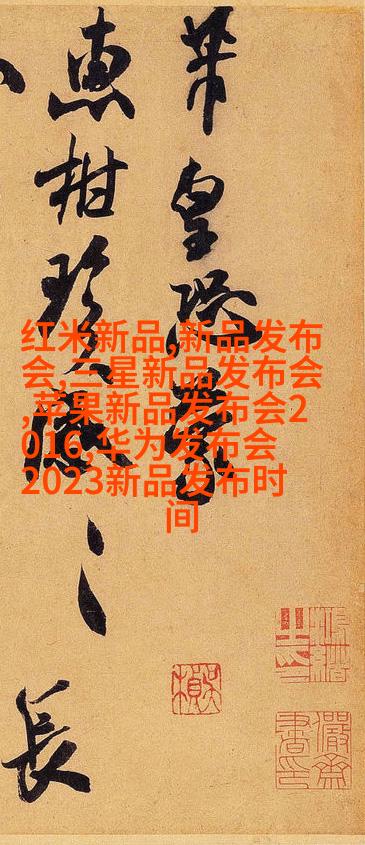 芾皇恐蒙
惠柑珍感〻長
红米新品,新品发布
会,三星新品发布会
,苹果新品发布会2
016,华为发布会
2023新品发布时
间